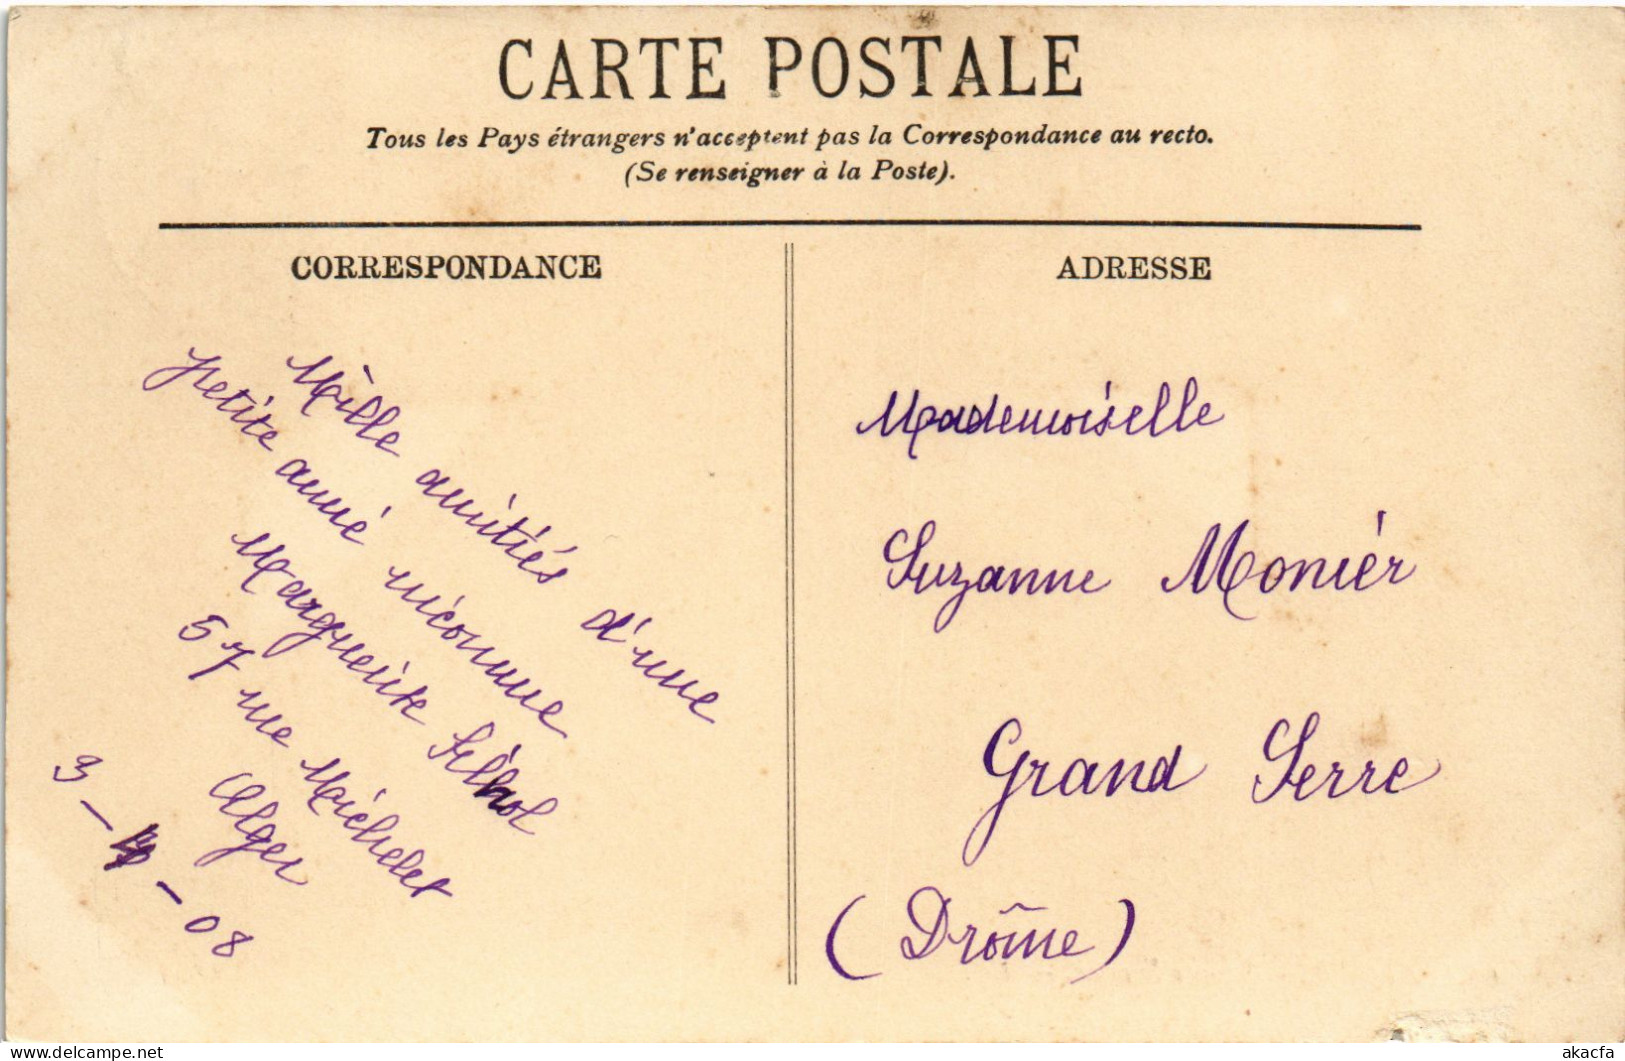 CARTE POSTALE
Tous les Pays étrangers n'acceptent pas la Correspondance au recto.
(Se renseigner à la Poste).
CORRESPONDANCE
Mille amitiés d'une
petite amie inconnue
Marguerite
57 rue Michelet
Alger
3 - - 08
ADRESSE
Mademoiselle
Suzanne Monier
Grand Serre
(Drôme)
akacfa